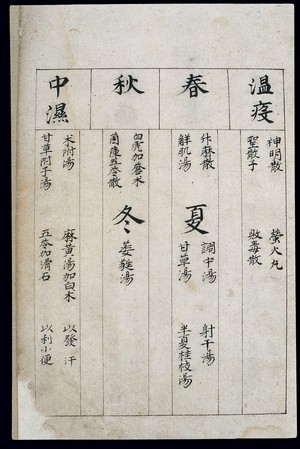 温疫
神明散 螢火丸
聖散子 敗毒散
春
升麻散
解肌湯
夏
調中湯 射干湯
甘草湯 半夏桂枝湯
秋
白虎加蒼朮
茵陳五苓散
冬
葳蕤湯
中濕
朮附湯 麻黃湯加白木 以發汗
甘草附子湯 五苓加滑石 以利小便